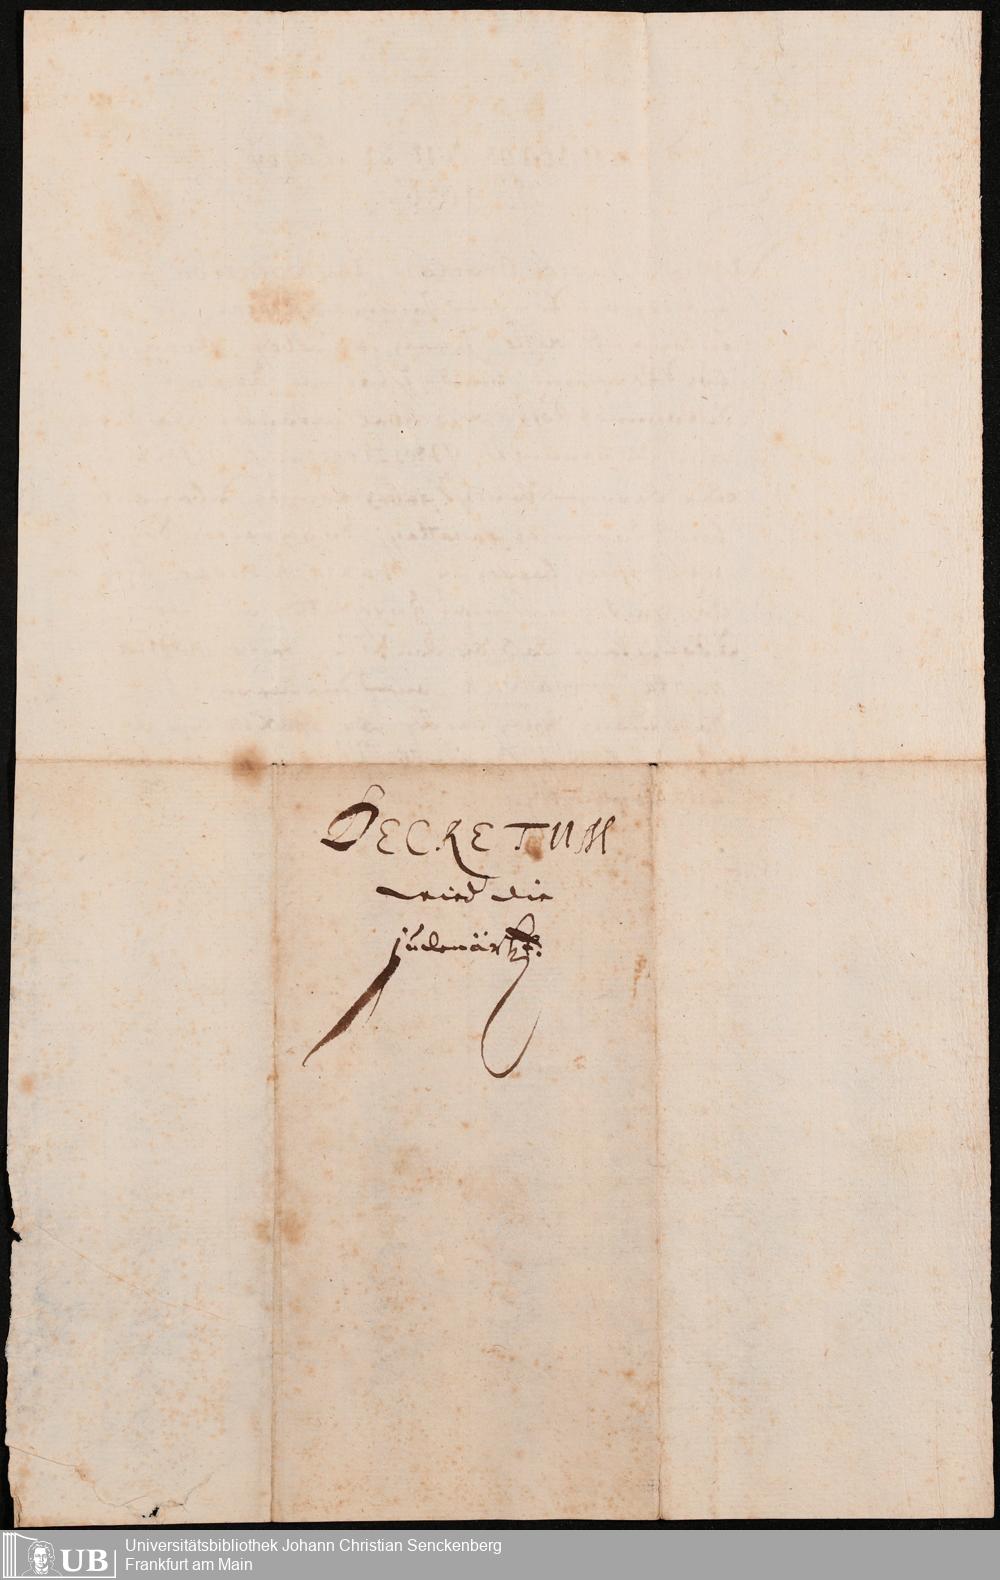 DECRETUM
wied die
judenärtz.
UB
Universitätsbibliothek Johann Christian Senckenberg
Frankfurt am Main